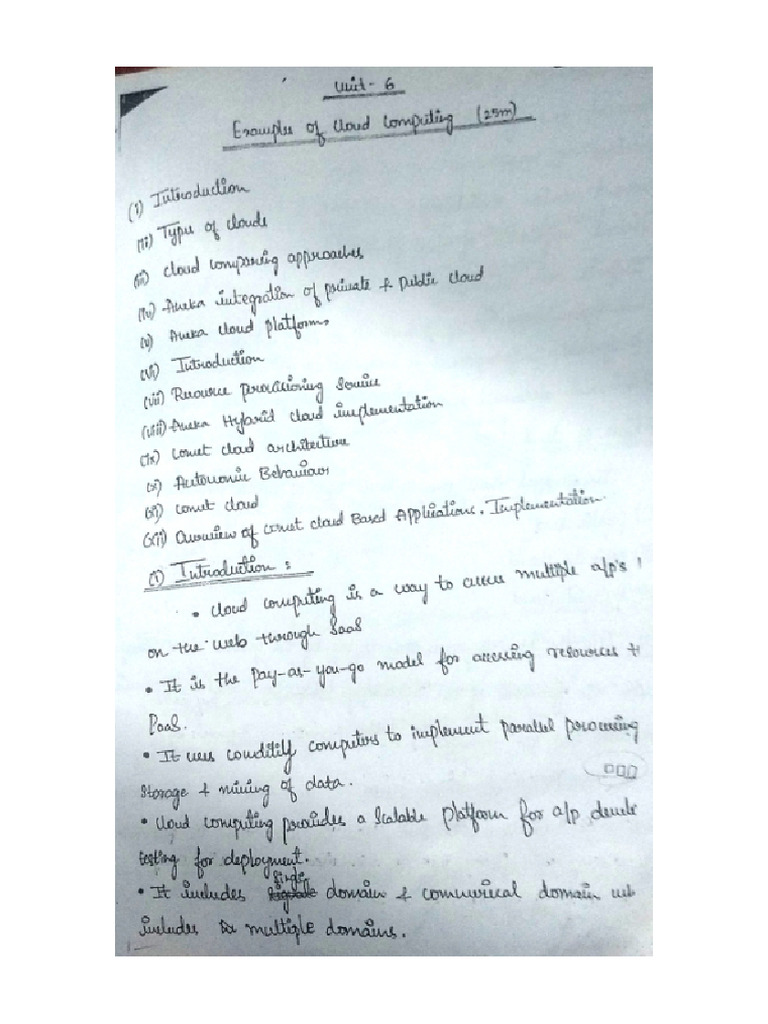 Unit- 6
Examples of Cloud Computing (25m)
(i) Introduction
(ii) Types of clouds
(iii) cloud comparing approaches
(iv) Aneka integration of private & Public cloud
(v) Aneka cloud platform,
(vi) Introduction
(vii) Resource provisioning Service
(viii) Aneka Hybrid cloud implementation
(ix) comet cloud architecture
(x) Autonomic Behaviour
(xi) comet cloud
(xii) Overview of comet cloud Based Applications. Implementation.
(i) Introduction :
• cloud computing is a way to access multiple a/p's
on the web through SaaS
• It is the pay-as-you-go model for accessing resources
PaaS.
• It uses computers to implement parallel processing
storage & mining of data.
• cloud computing provides a scalable platform for a/p
testing for deployment.
• It includes single domain & commerical domain
includes multiple domains.